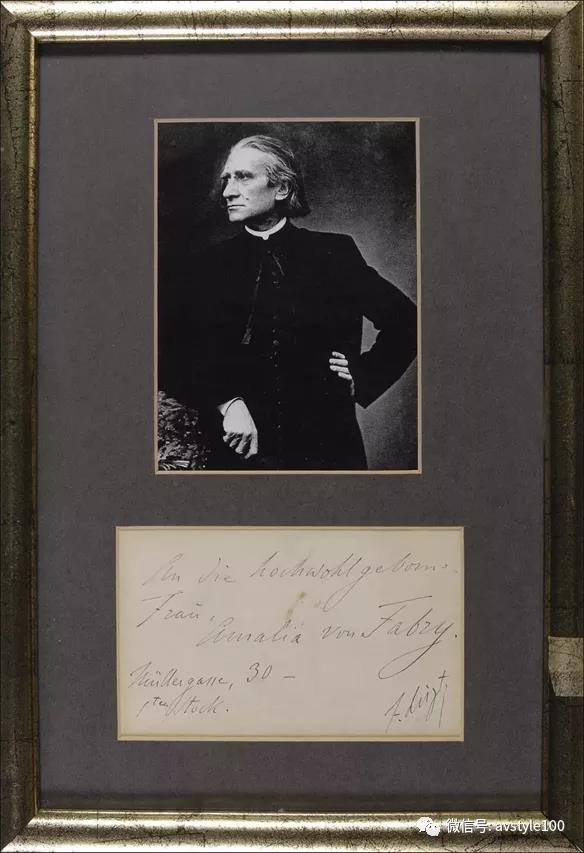 An die hochwohlgeborne
Frau,
Amalia von Fabry.
Müllergasse, 30 –
1ter Stock.
F. Liszt
微信号: avstyle100